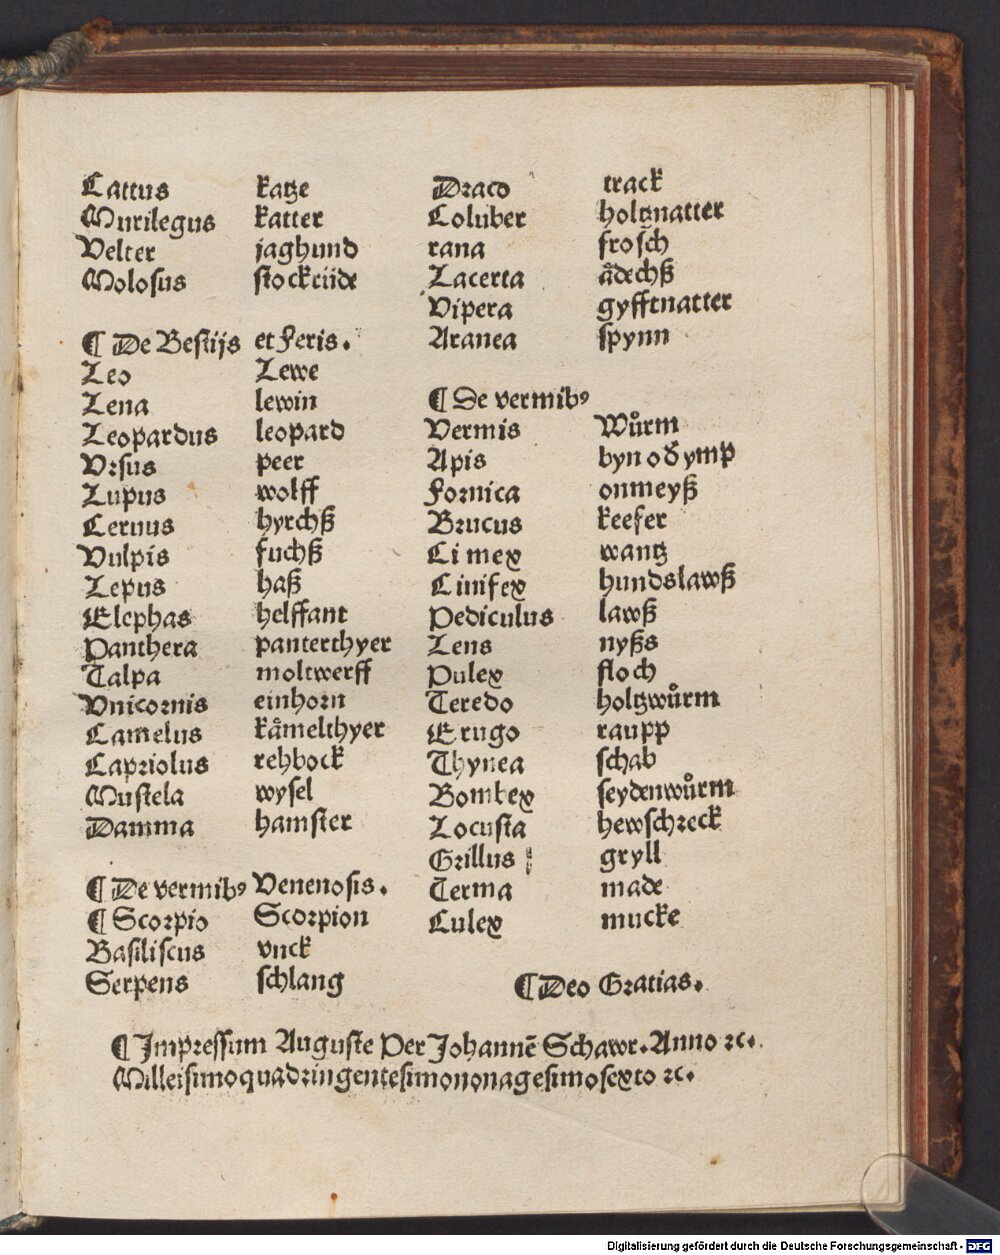 Cattus katze
Murilegus katter
Velter jaghund
Molosus stockrüde
¶ De Bestijs et Feris.
Leo Lewe
Lena lewin
Leopardus leopard
Vrsus peer
Lupus wolff
Ceruus hyrchß
Vulpis fuchß
Lepus haß
Elephas helffant
Panthera panterthyer
Talpa moltwerff
Vnicornis einhorn
Camelus kåmelthyer
Capriolus rehbock
Mustela wysel
Damma hamster
¶ De vermibꝰ Venenosis.
¶ Scorpio Scorpion
Basiliscus vnck
Serpens schlang
Draco track
Coluber holtznatter
rana frosch
Lacerta ådechß
Vipera gyfftnatter
Aranea spynn
¶ De vermibꝰ
Vermis Wůrm
Apis byn oď ymp
Fornica onmeyß
Brucus keefer
Cimex wantz
Cinifex hundslawß
Pediculus lawß
Lens nyßs
Pulex floch
Teredo holtzwůrm
Erugo raupp
Thynea schab
Bombex seydenwůrm
Locusta hewschreck
Grillus gryll
Terma made
Culex mucke
¶ Deo Gratias.
¶ Impressum Auguste Per Johannē Schawr. Anno ⁊c.
Milleisimoquadringentesimononagesimosexto ⁊c.
Digitalisierung gefördert durch die Deutsche Forschungsgemeinschaft - DFG